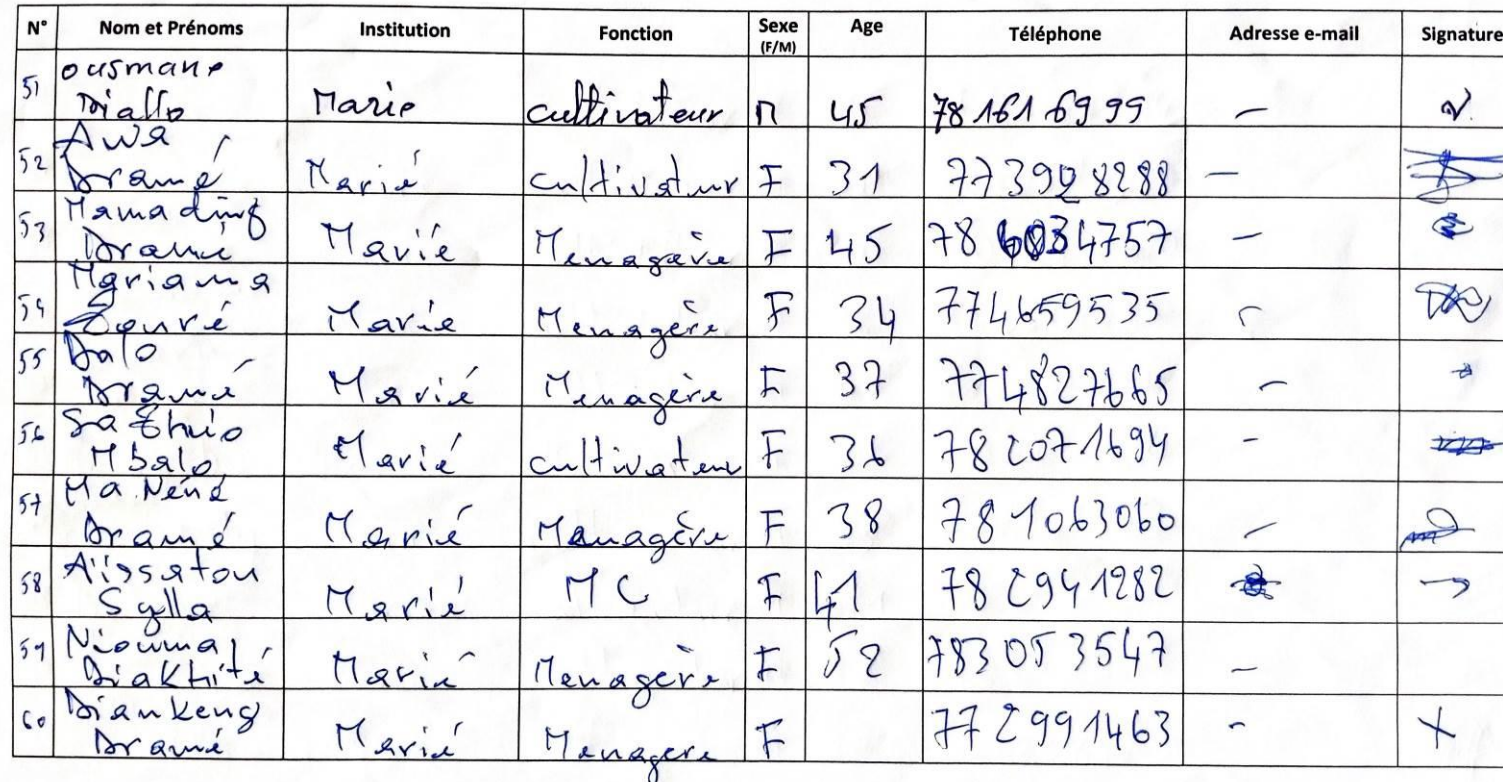 N° Nom et Prénoms Institution Fonction Sexe (F/M) Age Téléphone Adresse e-mail Signature
51 ousmane Diallo Marie cultivateur M 45 78 161 69 99 –
52 Awa Dramé Marié cultivateur F 31 77 392 8288 –
53 Mamading Dramé Marié Menagère F 45 78 6034757 –
54 Mariama Touré Marié Menagère F 34 774659535 –
55 Dalo Dramé Marié Menagère F 37 774827665 –
56 Mbalo Marié cultivateur F 36 78 2071694 –
57 Ma Néné Dramé Marié Menagère F 38 78 1063060 –
58 Aïssatou Sylla Marié MC F 41 78 2941282
59 Niouma Diakhité Marié Menagère F 52 783053547 –
60 Diankeng Dramé Marié Menagere F 77 2991463 – X